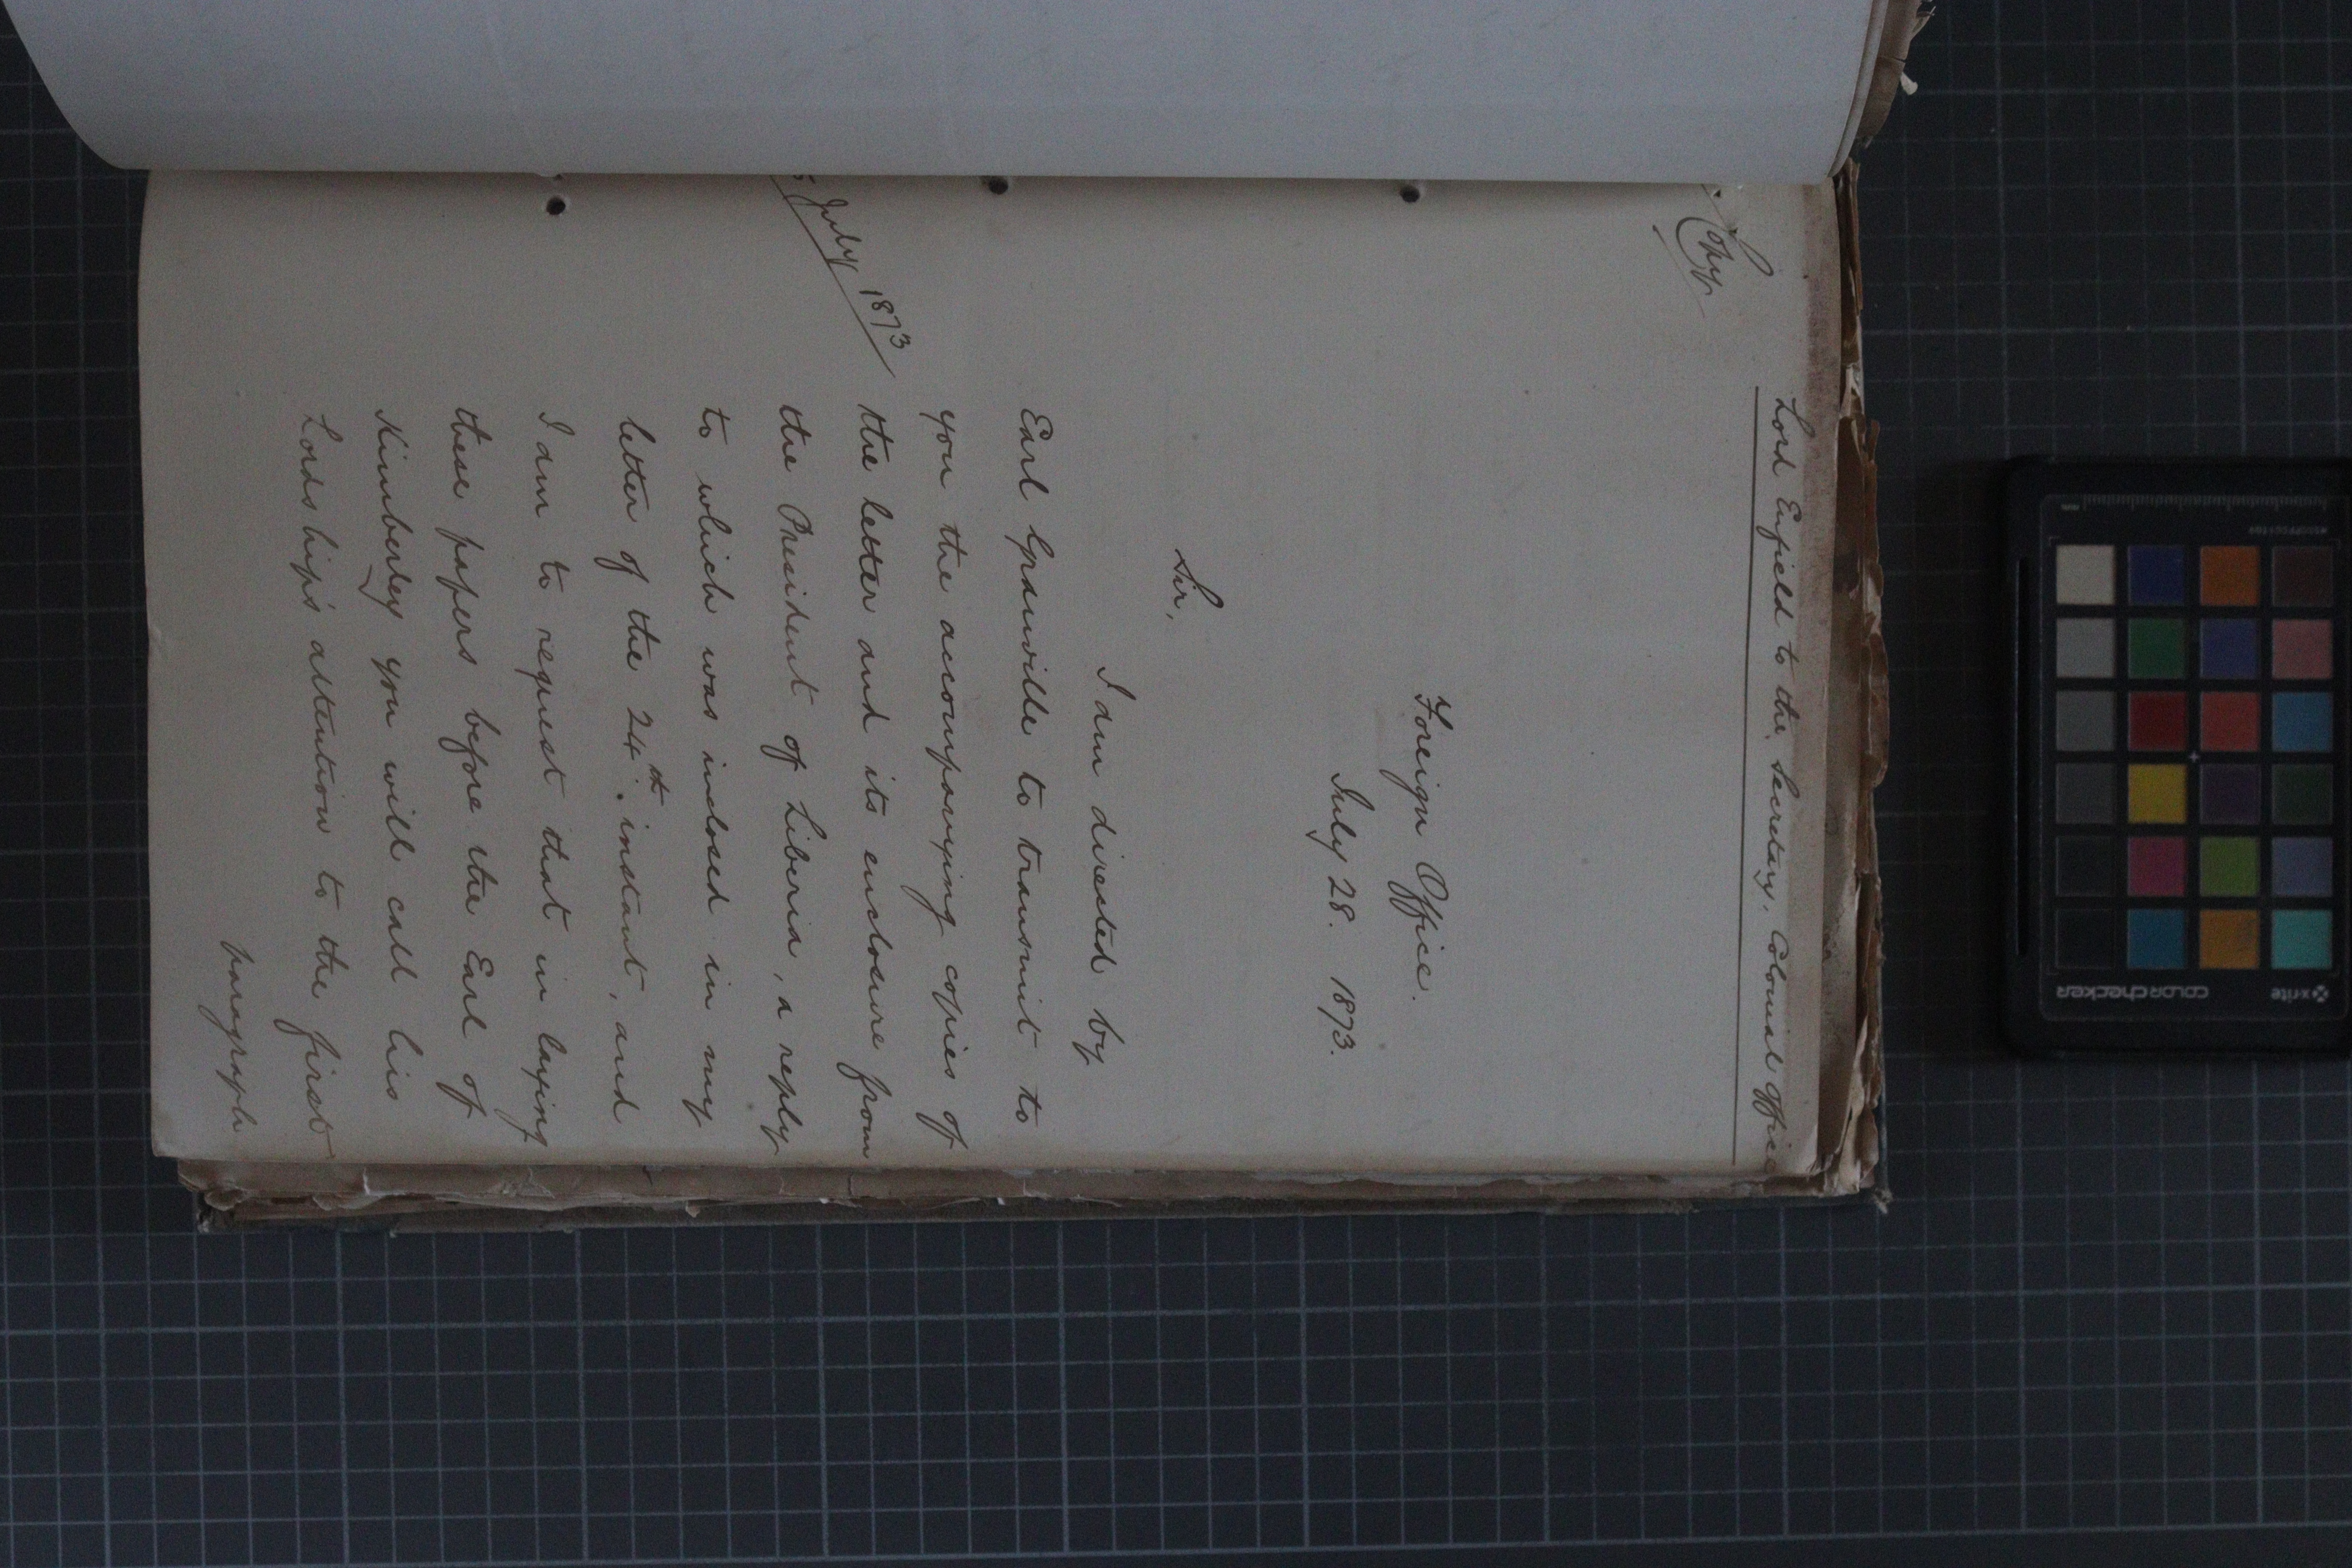 Copy
Lord Enfield to the Secretary. Colonial Office
Foreign Office.
July 28. 1873.
Sir,
I am directed by
Earl Granville to transmit to
you the accompanying copies of
July 1873
the letter and its enclosure from
the President of Liberia, a reply
to which was inclosed in my
letter of the 24th. instant, and
I am to request that in laying
these papers before the Earl of
Kimberley you will call his
Lordship's attention to the first
paragraph